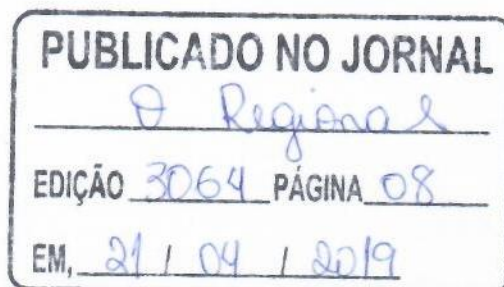 PUBLICADO NO JORNAL
O Regional
EDIÇÃO 3064 PÁGINA 08
EM, 21 / 04 / 2019